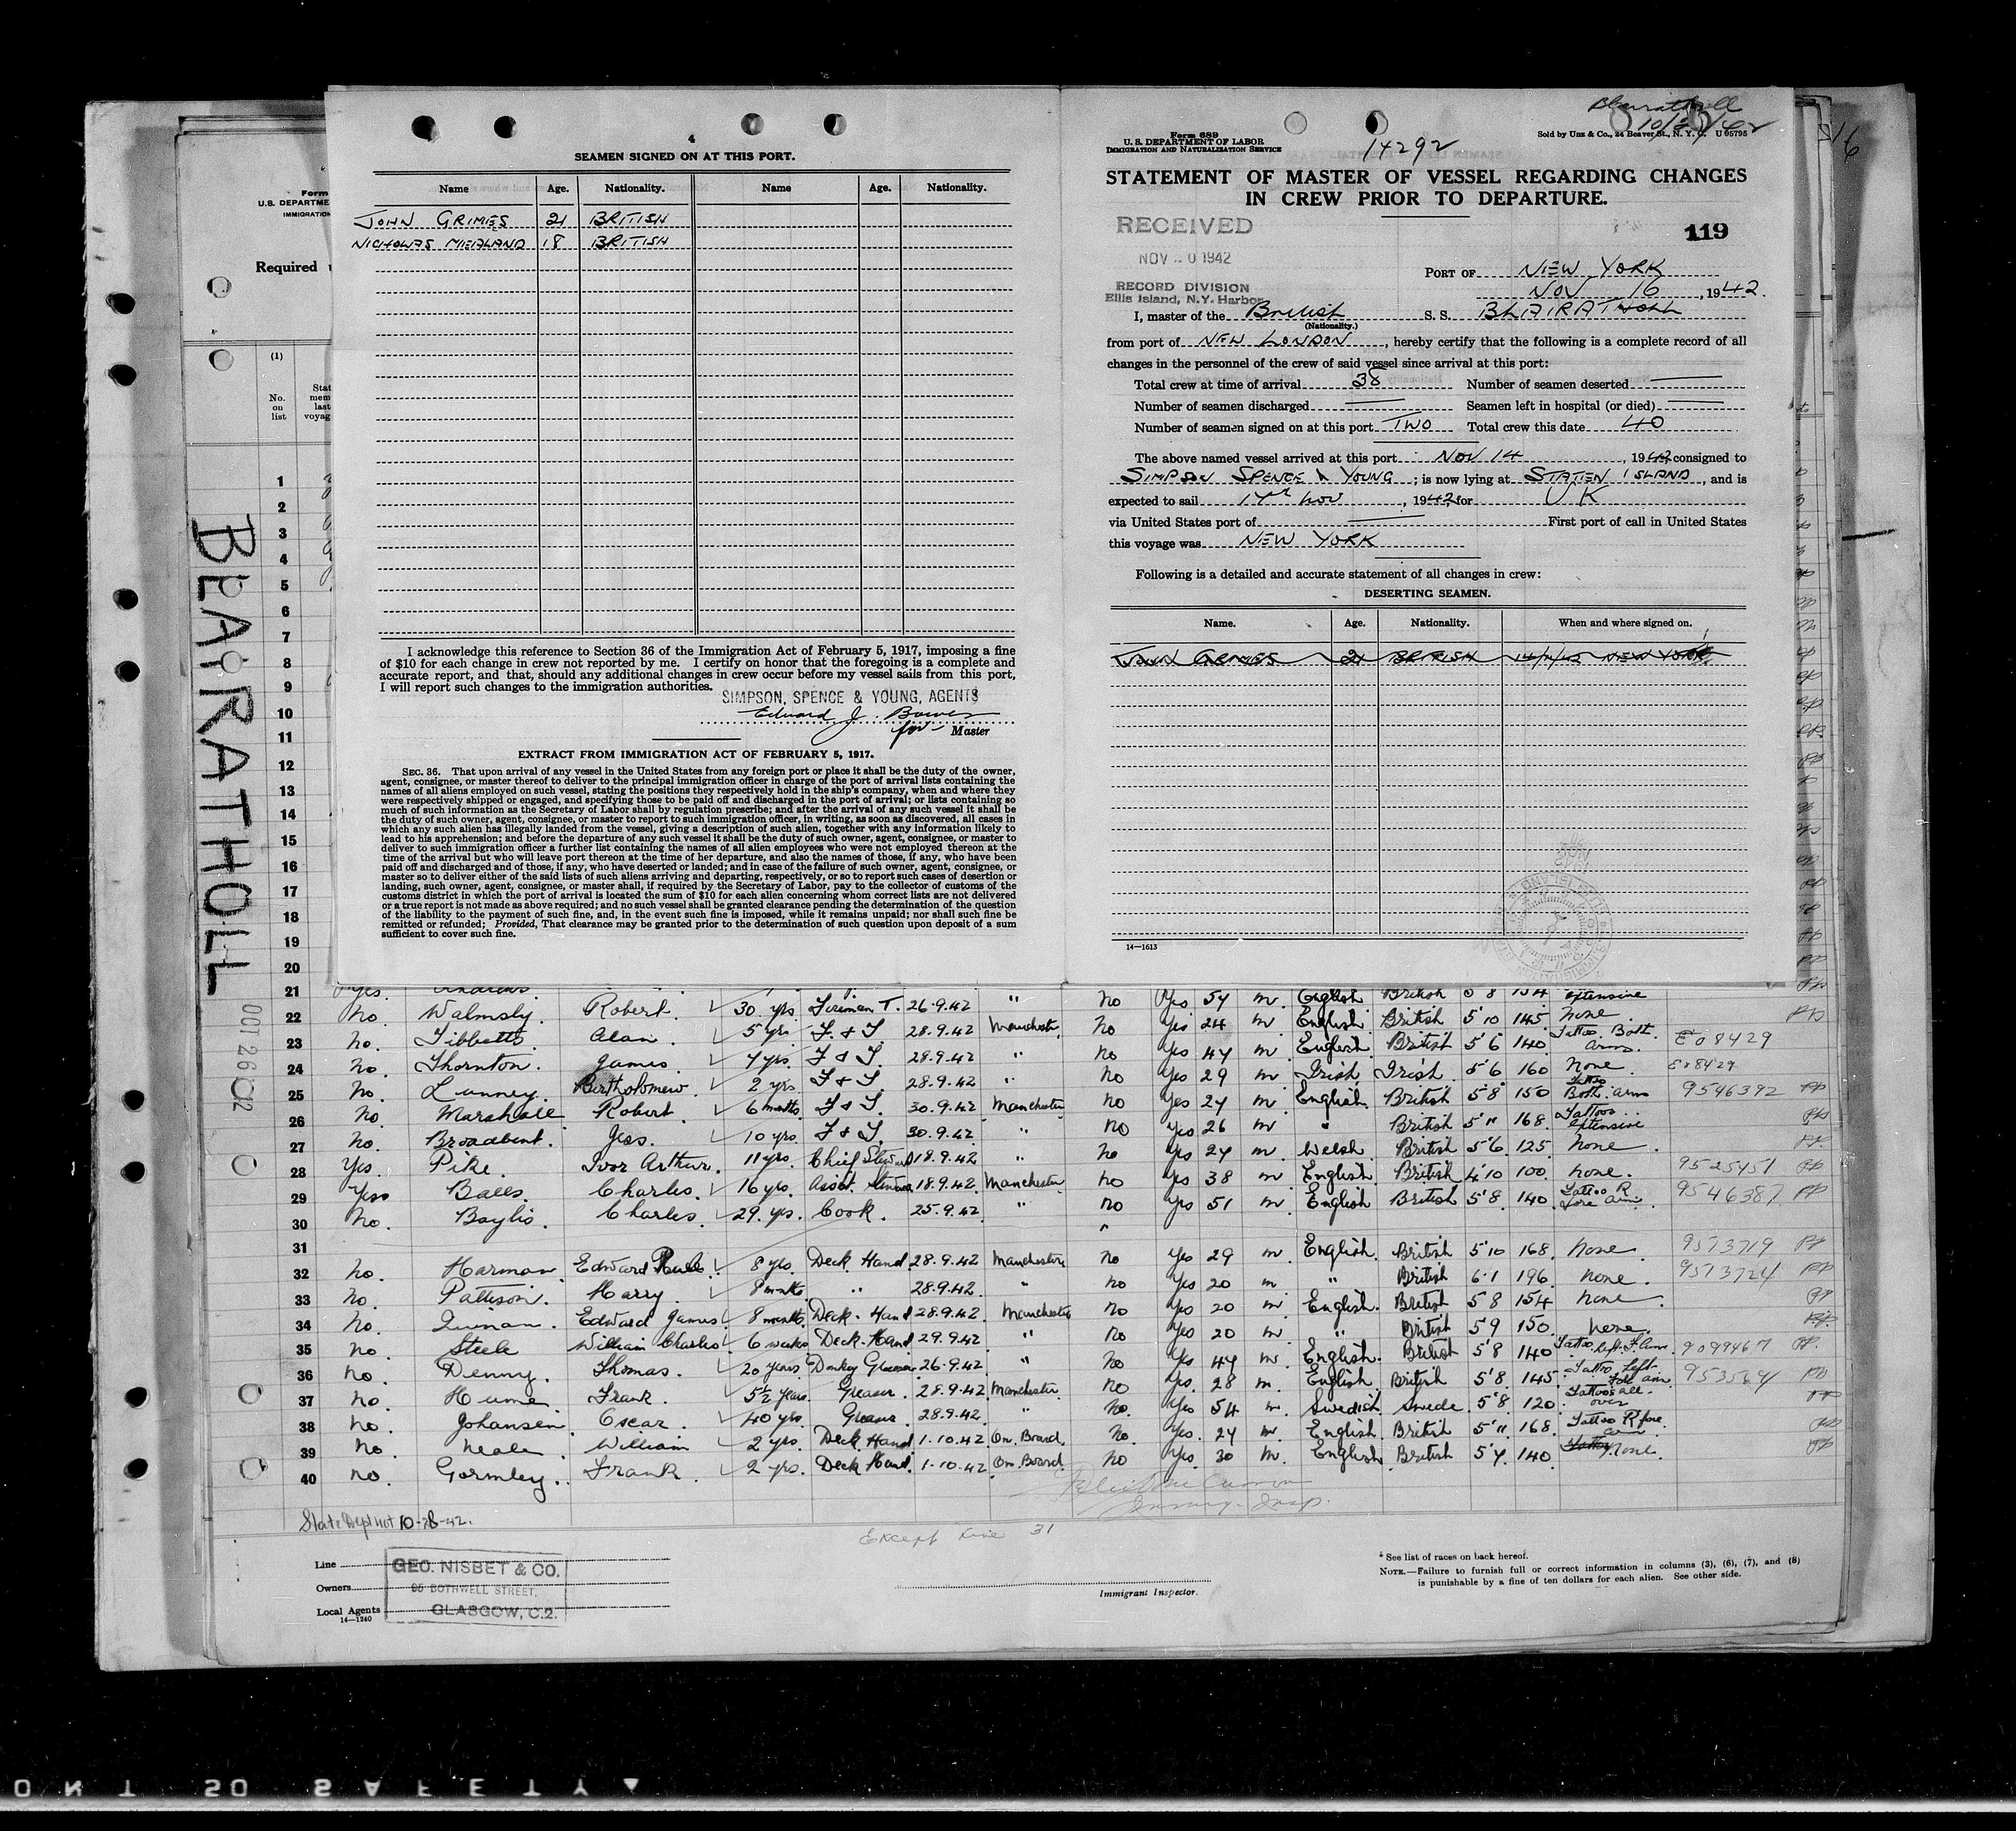 4
SEAMEN SIGNED ON AT THIS PORT.
Name Age. Nationality. Name Age. Nationality.
JOHN GRIMES 21 BRITISH
18 BRITISH
I acknowledge this reference to Section 36 of the Immigration Act of February 5, 1917, imposing a fine
of $10 for each change in crew not reported by me. I certify on honor that the foregoing is a complete and
accurate report, and that, should any additional changes in crew occur before my vessel sails from this port,
I will report such changes to the immigration authorities.
SIMPSON, SPENCE & YOUNG, AGENTS
Edward J.
for Master
EXTRACT FROM IMMIGRATION ACT OF FEBRUARY 5, 1917.
SEC. 36. That upon arrival of any vessel in the United States from any foreign port or place it shall be the duty of the owner,
agent, consignee, or master thereof to deliver to the principal immigration officer in charge of the port of arrival lists containing the
names of all aliens employed on such vessel, stating the positions they respectively hold in the ship's company, when and where they
were respectively shipped or engaged, and specifying those to be paid off and discharged in the port of arrival; or lists containing so
much of such information as the Secretary of Labor shall by regulation prescribe; and after the arrival of any such vessel it shall be
the duty of such owner, agent, consignee, or master to report to such immigration officer, in writing, as soon as discovered, all cases in
which any such alien has illegally landed from the vessel, giving a description of such alien, together with any information likely to
lead to his apprehension; and before the departure of any such vessel it shall be the duty of such owner, agent, consignee, or master to
deliver to such immigration officer a further list containing the names of all alien employees who were not employed thereon at the
time of the arrival but who will leave port thereon at the time of her departure, and also the names of those, if any, who have been
paid off and discharged and of those, if any, who have deserted or landed; and in case of the failure of such owner, agent, consignee, or
master so to deliver either of the said lists of such aliens arriving and departing, respectively, or so to report such cases of desertion or
landing, such owner, agent, consignee, or master shall, if required by the Secretary of Labor, pay to the collector of customs of the
customs district in which the port of arrival is located the sum of $10 for each alien concerning whom correct lists are not delivered
or a true report is not made as above required; and no such vessel shall be granted clearance pending the determination of the question
of the liability to the payment of such fine, and, in the event such fine is imposed, while it remains unpaid; nor shall such fine be
remitted or refunded; Provided, That clearance may be granted prior to the determination of such question upon deposit of a sum
sufficient to cover such fine.
Form 689
U. S. DEPARTMENT OF LABOR
IMMIGRATION AND NATURALIZATION SERVICE
14292
Sold by Unz & Co., 24 Beaver St., N. Y. C. U 95795
STATEMENT OF MASTER OF VESSEL REGARDING CHANGES
IN CREW PRIOR TO DEPARTURE.
RECEIVED
119
NOV 20 1942
PORT OF NEW YORK
RECORD DIVISION
Ellis Island, N.Y. Harbor
NOV 16, 1942.
I, master of the British S. S. BLAIRATHOLL
(Nationality.)
from port of NEW LONDON, hereby certify that the following is a complete record of all
changes in the personnel of the crew of said vessel since arrival at this port:
Total crew at time of arrival 38 Number of seamen deserted
Number of seamen discharged Seamen left in hospital (or died)
Number of seamen signed on at this port TWO Total crew this date 40
The above named vessel arrived at this port NOV 14, 1942 consigned to
SIMPSON SPENCE & YOUNG; is now lying at STATEN ISLAND, and is
expected to sail Nov, 1942 for UK
via United States port of First port of call in United States
this voyage was NEW YORK
Following is a detailed and accurate statement of all changes in crew:
DESERTING SEAMEN.
Name. Age. Nationality. When and where signed on.
JOHN GRIMES 21 BRITISH 14/11/42 NEW YORK
14—1613
Form
U. S. DEPARTME
IMMIGRATION
Required
(1)
No. on list
BLAIRATHOLL
OCT 26 1942
1
2
3
4
5
6
7
8
9
10
11
12
13
14
15
16
17
18
19
20
21 Yes. Yes 54 m English British 5'8 154 extensive
22 No. Walmsly. Robert. 30 yrs. Fireman T. 26.9.42 " No Yes 24 m English British 5'10 145 None
23 No. Tibbetts Alan. 5 yrs F & T. 28.9.42 Manchester No Yes 44 m English British 5'6 140 Tattoo Both arms.
24 No. Thornton. James. 4 yrs. F & T. 28.9.42 " No Yes 29 m Irish Irish 5'6 160 None
25 No. Lunney. Bartholomew. 2 yrs F & T. 28.9.42 " No Yes 24 m English British 5'8 150 Tattoo Both arms 9546392
26 No Marshall Robert. 6 months F & T. 30.9.42 Manchester No Yes 26 m " British 5'11 168 Tattoos extensive
27 No. Broadbent. Jess. 10 yrs. F & T. 30.9.42 " No Yes 24 m Welsh British 5'6 125 None
28 Yes. Pike. Ivor Arthur. 11 yrs. Chief Steward 18.9.42 " No Yes 38 m English British 4'10 100 none. 9525451
29 Yes Bales. Charles. 16 yrs. Asst. Steward 18.9.42 Manchester No Yes 51 m English British 5'8 140 Tattoo R fore arm. 9546387
30 No. Baylis. Charles. 29 yrs. Cook. 25.9.42 "
31
No Yes 29 m English British 5'10 168 None 9573719
32 No. Harman. Edward 8 yrs. Deck Hand 28.9.42 Manchester No Yes 20 m " British 6'1 196 None. 9573724
33 No. Pattison. Harry. 8 months " 28.9.42 " No Yes 20 m English British 5'8 154 None
34 No. Edward James. 8 months Deck Hand 28.9.42 Manchester No Yes 20 m " British 5'9 150 None
35 No Steele William Charles. 6 weeks Deck Hand 29.9.42 " No Yes 44 m English British 5'8 140 Tattoo left F. Arm
36 No. Denny. Thomas. 20 years Donkey Greaser 26.9.42 " No Yes. 28 m English British 5'8 145 Tattoo Left Fore arm
37 No. Hume. Frank. 5½ years. Greaser. 28.9.42 Manchester No. Yes 54 m Swedish Swede 5'8 120 Tattoos all over
38 No. Johansen. Oscar. 40 yrs. Greaser 28.9.42 " No. Yes. 24 m English British 5'11 168 Tattoo R fore arm
39 No. Neale William 2 yrs. Deck Hand 1.10.42 On. Board. No Yes. 30 M English British 5'4 140 None
40 No Gormley. Frank. 2 yrs. Deck Hand. 1.10.42 On. Board
State Dept not 10-28-42.
Except line 31
Line
Owners
Local Agents
14—1240
GEO. NISBET & CO.
95 BOTHWELL STREET,
GLASGOW, C.2.
Immigrant Inspector.
* See list of races on back hereof.
NOTE.—Failure to furnish full or correct information in columns (3), (6), (7), and (8)
is punishable by a fine of ten dollars for each alien. See other side.
SAFETY